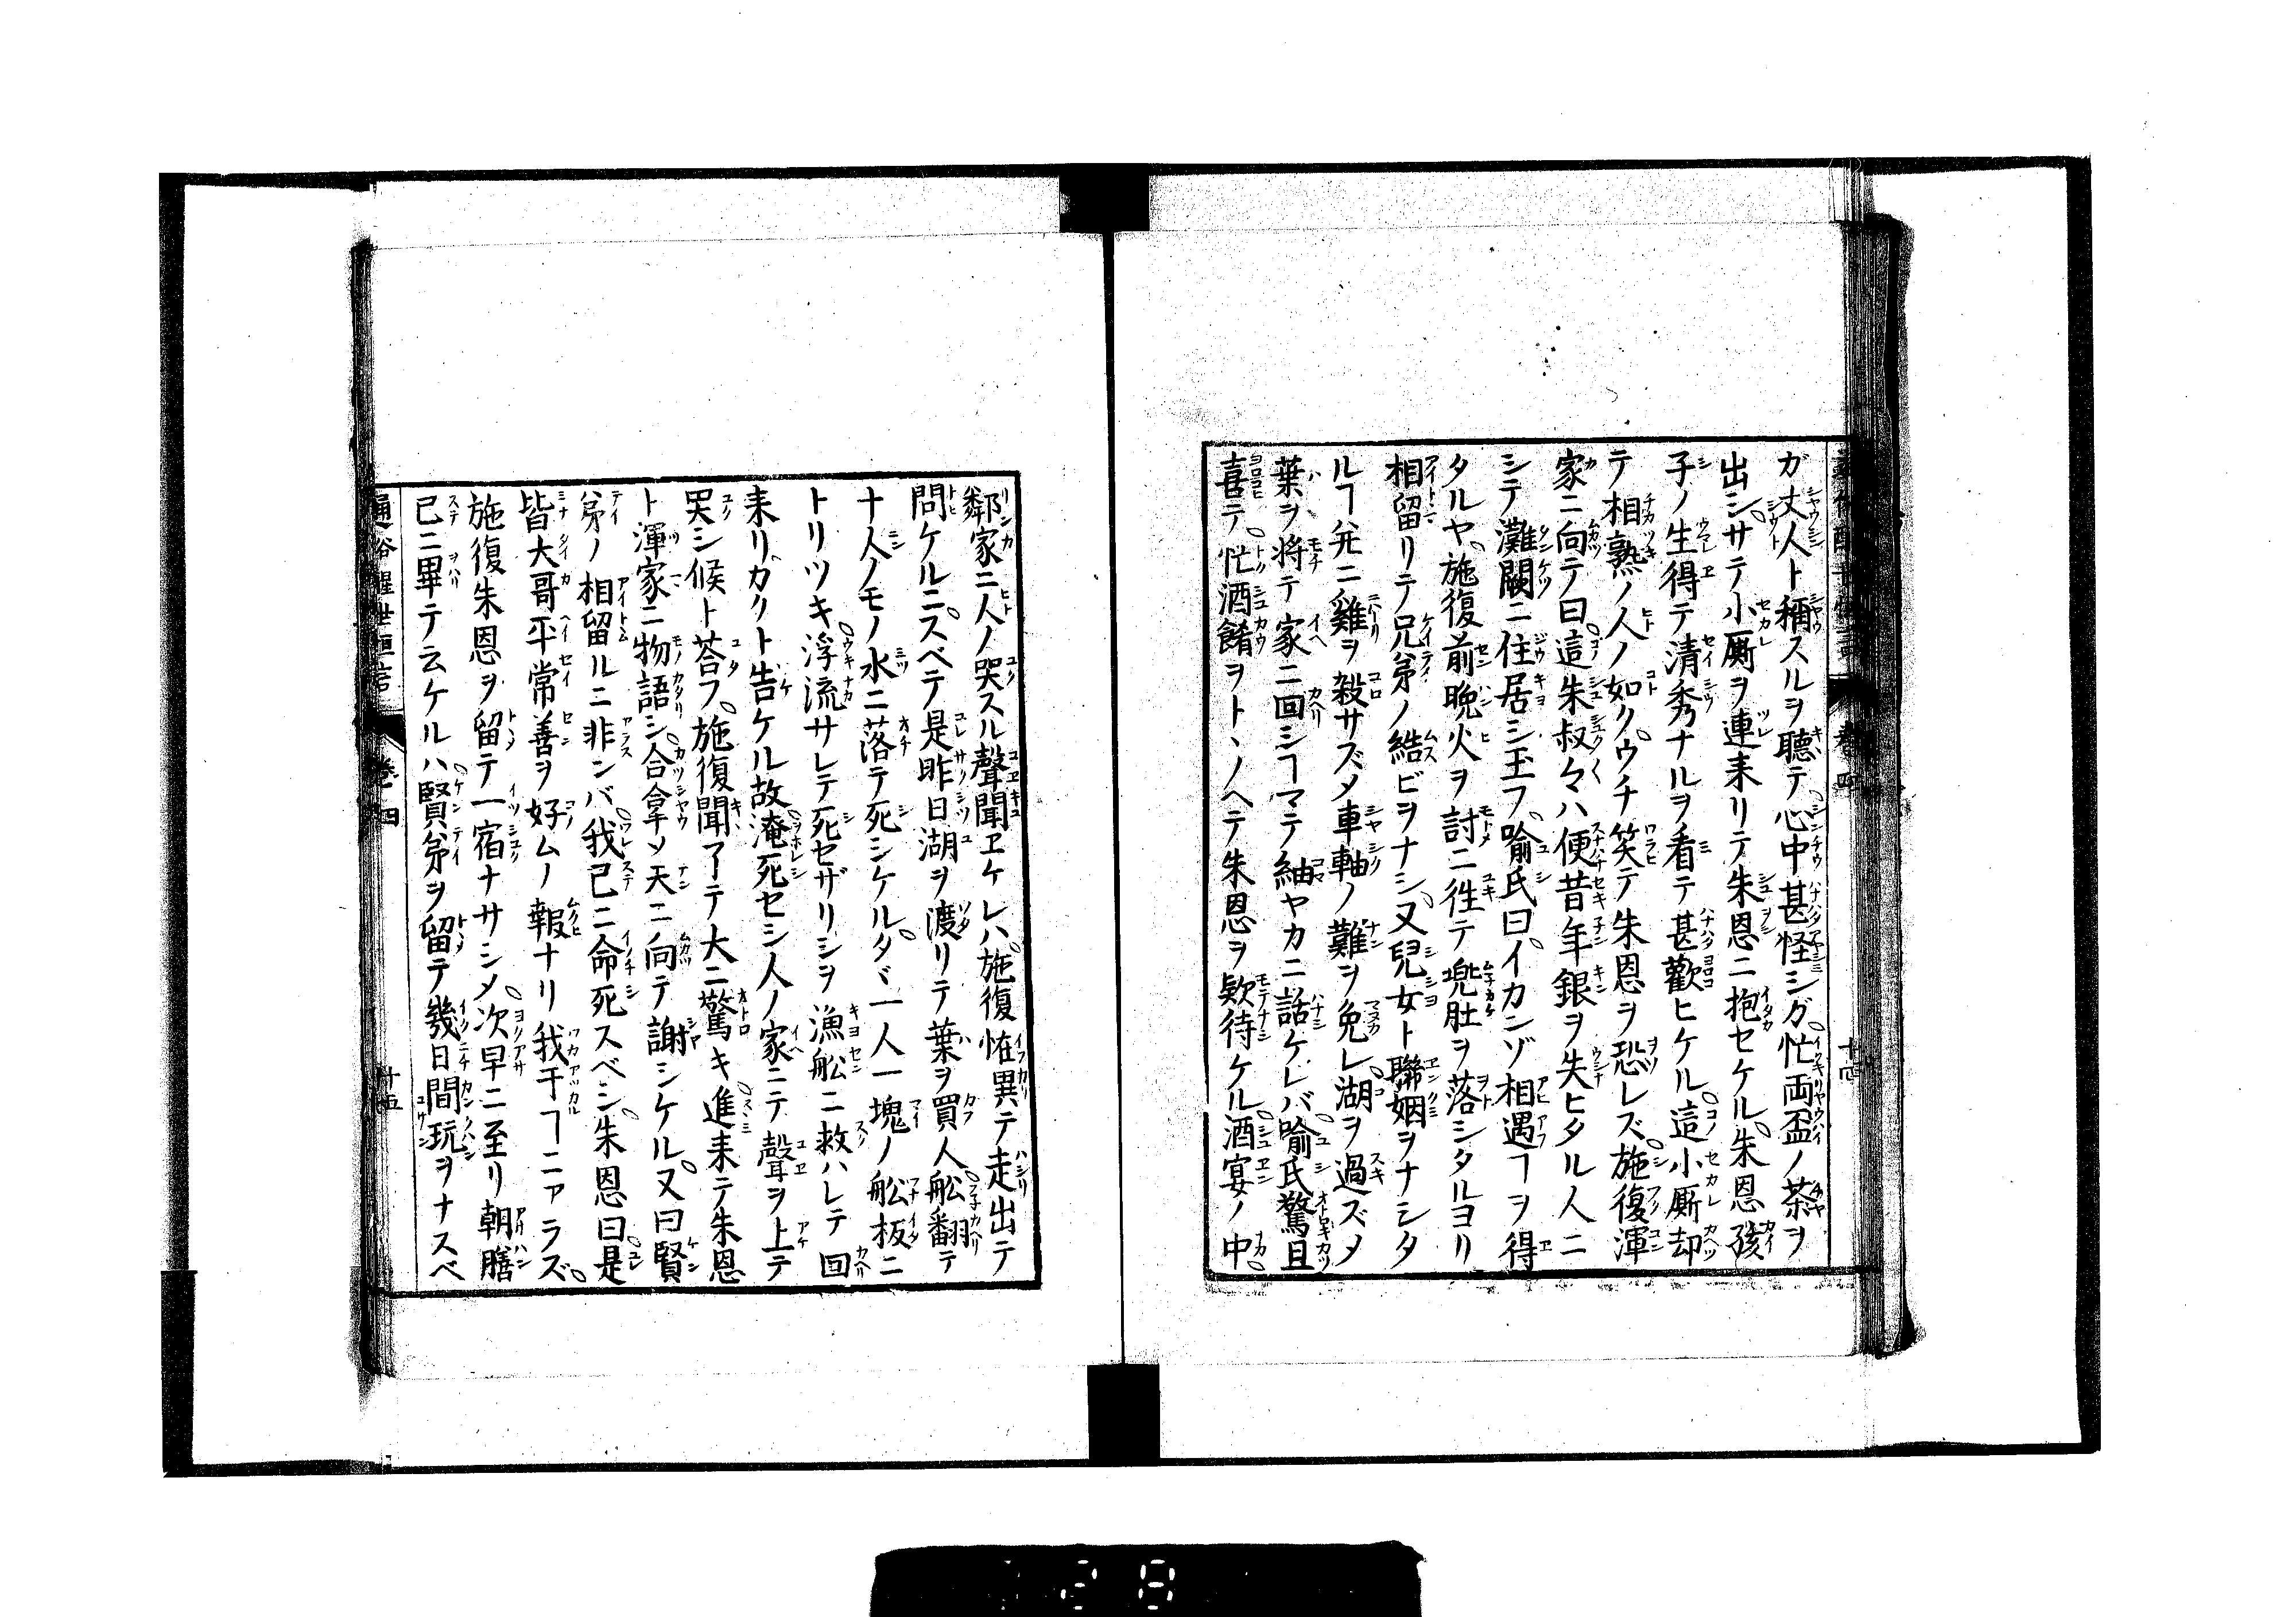 ガ丈人ト稱スルヲ聽テ心中甚怪シグ忙両盃ノ茶ヲ
出シサテ小厮ヲ連耒リテ朱恩ニ抱セケル朱恩孩
子ノ生得テ清秀ナルヲ看テ甚歡ヒケル這小厮却
テ相熟ノ人ノ如クウチ笑テ朱恩ヲ恐レズ施復渾
家ニ向テ曰這朱叔々ハ便昔年銀ヲ失ヒタル人ニ
シテ灘闕ニ住居シ玉フ喻氏曰イカンゾ相遇ヿヲ得
タルヤ施復前晩火ヲ討ニ徃テ兜肚ヲ落シタルヨリ
相留リテ兄弟ノ結ビヲナシ又兒女ト聯姻ヲナシタ
ルヿ并ニ雞ヲ殺サズメ車軸ノ難ヲ免レ湖ヲ過ズメ
葉ヲ将テ家ニ回シヿマテ紬ヤカニ話ケレバ喻氏驚且
喜テ忙酒餚ヲトヽノヘテ朱恩ヲ欵待ケル酒宴ノ中
鄰家ニ人ノ哭スル聲聞ヱケレバ施復恠異テ走出テ
問ケルニスベテ是昨日湖ヲ渡リテ葉ヲ買人舩翻テ
十人ノモノ水ニ落テ死シケルタヾ一人一塊ノ舩板ニ
トリツキ浮流サレテ死セザリシヲ漁舩ニ救ハレテ回
耒リカクト告ケル故淹死セシ人ノ家ニテ聲ヲ上テ
哭シ候ト荅フ施復聞了テ大ニ驚キ進耒テ朱恩
ト渾家ニ物語シ合拿メ天ニ向テ謝シケル又曰賢
弟ノ相留ルニ非ンバ我已ニ命死スベシ朱恩曰是
皆大哥平常善ヲ好ムノ報ナリ我干ヿニアラズ
施復朱恩ヲ留テ一宿ナサシメ次早ニ至リ朝膳
已ニ畢テ云ケルハ賢弟ヲ留テ幾日間玩ヲナスベ
通俗醒世恒言 卷四 十五